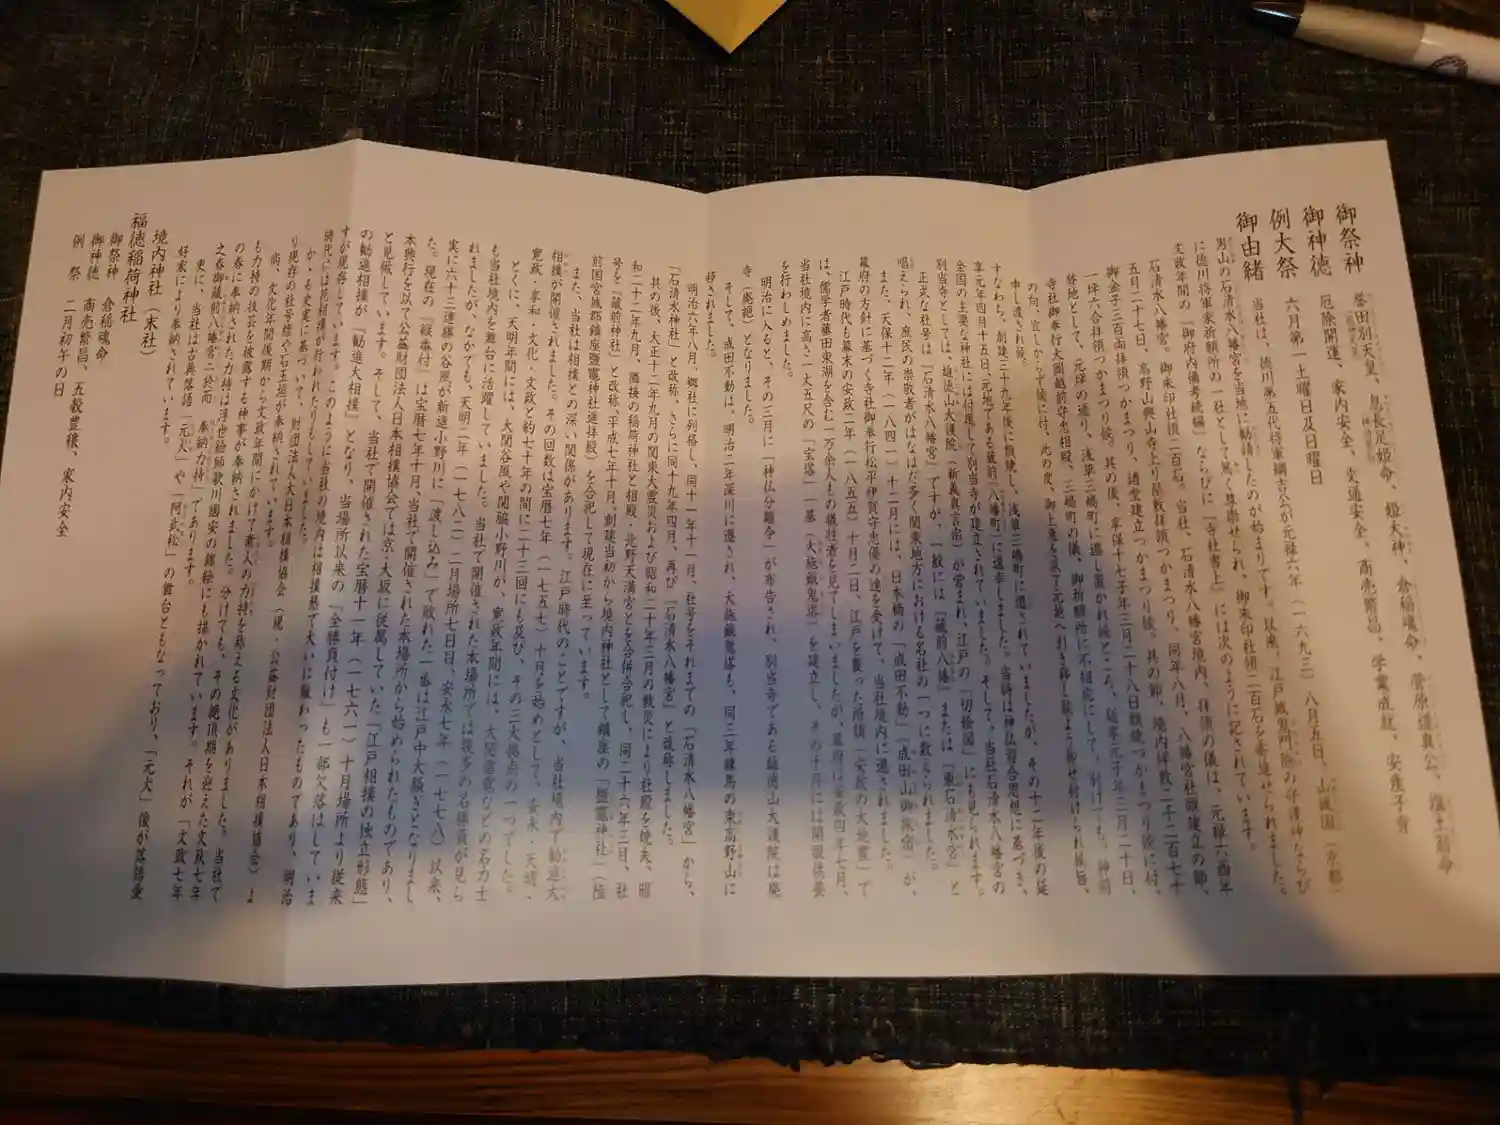 御祭神　誉田別天皇、息長足姫命、姫大神、倉稲魂命、菅原道真公、塩土翁命
御神徳　厄除開運、家内安全、交通安全、商売繁昌、学業成就、安産子育
例大祭　六月第一土曜日及日曜日
御由緒　当社は、徳川第五代将軍綱吉公が元禄六年（一六九三）八月五日、山城国（京都）
男山の石清水八幡宮を当地に勧請したのが始まりです。以来、江戸城鬼門除の守護神ならび
に徳川将軍家祈願所の一社として篤く尊崇せられ、御朱印社領二百石を寄進せられました。
文政年間の『御府内備考続編』ならびに『寺社書上』には次のように記されています。
石清水八幡宮。御朱印社領二百石。当社、石清水八幡宮境内、拝領の儀は、元禄六酉年
五月二十七日、高野山興山寺上り屋敷拝領つかまつり、同年八月、八幡宮社頭建立の節、
御金子三百両拝領つかまつり、諸堂建立つかまつり候。其の節、境内坪数二千二百七十
一坪六合拝領つかまつり候。其の後、享保十七子年三月二十八日類焼つかまつり候に付、
替地として、元坪の通り、浅草三嶋町に遷し置かれ候ところ、延享元子年三月二十日、
寺社御奉行大岡越前守忠相殿、三嶋町の儀、御祈願所に不相応にして、別けても、神前
の向、宜しからず候に付、此の度、御上意を以て元地へ引き移し候よう仰せ付けられ候旨、
申し渡され候。
すなわち、創建三十九年後に類焼し、浅草三嶋町に遷されていましたが、その十二年後の延
享元年四月十五日、元地である蔵前（八幡町）に還幸しました。当時は神仏習合思想に基づき、
全国の主要な神社には付属して別当寺が建立されていました。そして、当社石清水八幡宮の
別当寺としては、雄徳山大護院（新義真言宗）が営まれ、江戸の「切絵図」にも見られます。
正式な社号は『石清水八幡宮』ですが、一般には『蔵前八幡』または『東石清水宮』と
唱えられ、庶民の崇敬者がはなはだ多く関東地方における名社の一つに数えられました。
また、天保十二年（一八四一）十二月には、日本橋の「成田不動」（成田山御旅宿）が、
幕府の方針に基づく寺社御奉行松平伊賀守忠優の達を受けて、当社境内に遷されました。
江戸時代も幕末の安政二年（一八五五）十月二日、江戸を襲った所謂「安政の大地震」で
は、儒学者藤田東湖を含む一万余人もの犠牲者を見てしまいましたが、幕府は安政四年七月、
当社境内に高さ一丈五尺の「宝塔」一基（大施餓鬼塔）を建立し、その十月には開眼供養
を行わしめました。
明治に入ると、その三月に「神仏分離令」が布告され、別当寺である雄徳山大護院は廃
寺（廃絶）となりました。
そして、成田不動は、明治二年深川に遷され、大施餓鬼塔も、同三年練馬の東高野山に
移されました。
明治六年八月、郷社に列格し、同十一年十一月、社号をそれまでの『石清水八幡宮』から、
『石清水神社』と改称、さらに同十九年四月、再び『石清水八幡宮』と改称しました。
其の後、大正十二年九月の関東大震災および昭和二十年三月の戦災により社殿を焼失、昭
和二十二年九月、隣接の稲荷神社と相殿・北野天満宮とを合併合祀し、同二十六年三月、社
号を『蔵前神社』と改称、平成七年十月、創建当初から境内神社として鎮座の『塩竈神社』（陸
前国宮城郡鎮座塩竈神社遥拝殿）を合祀して現在に至っています。
また、当社は相撲との深い関係があります。江戸時代のことですが、当社境内で勧進大
相撲が開催されました。その回数は宝暦七年（一七五七）十月を始めとして、安永・天明・
寛政・享和・文化・文政と約七十年の間に二十三回にも及び、その三大拠点の一つでした。
とくに、天明年間には、大関谷風や関脇小野川が、寛政年間には、大関雷電などの名力士
も当社境内を舞台に活躍していました。当社で開催された本場所では幾多の名勝負が見ら
れましたが、なかでも、天明二年（一七八二）二月場所七日目、安永七年（一七七八）以来、
実に六十三連勝の谷風が新進小野川に「渡し込み」で敗れた一番は江戸中大騒ぎとなりまし
た。現在の『縦番付』は宝暦七年十月、当社で開催された本場所から始められたものであり、
本興行を以て公益財団法人日本相撲協会では京・大坂に従属していた「江戸相撲の独立形態」
と見做しています。そして、当社で開催された宝暦十一年（一七六一）十月場所より従来
の勧進相撲が『勧進大相撲』となり、当場所以来の『全勝負付け』も一部欠落はしていま
すが現存しています。このように当社の境内は相撲熱で大いに賑わったものであり、明治
時代には花相撲が行われたりもしていました。
かゝる史実に基づいて、財団法人大日本相撲協会（現・公益財団法人日本相撲協会）よ
り現存の社号標や石玉垣が奉納されています。
尚、文化年間後期から文政年間にかけて素人の力持を称える文化がありました。当社で
も力持の技芸を披露する神事が奉納されました。分けても、その絶頂期を迎えた文政七年
の春に奉納された力持は浮世絵師歌川國安の錦絵にも描かれています。それが「文政七年
之春御蔵前八幡宮ニ於而　奉納力持」であります。
更に、当社は古典落語「元犬」や「阿武松」の舞台ともなっており、「元犬」像が落語愛
好家により奉納されています。
境内神社（末社）
福徳稲荷神社
御祭神　倉稲魂命
御神徳　商売繁昌、五穀豊穣、家内安全
例　祭　二月初午の日